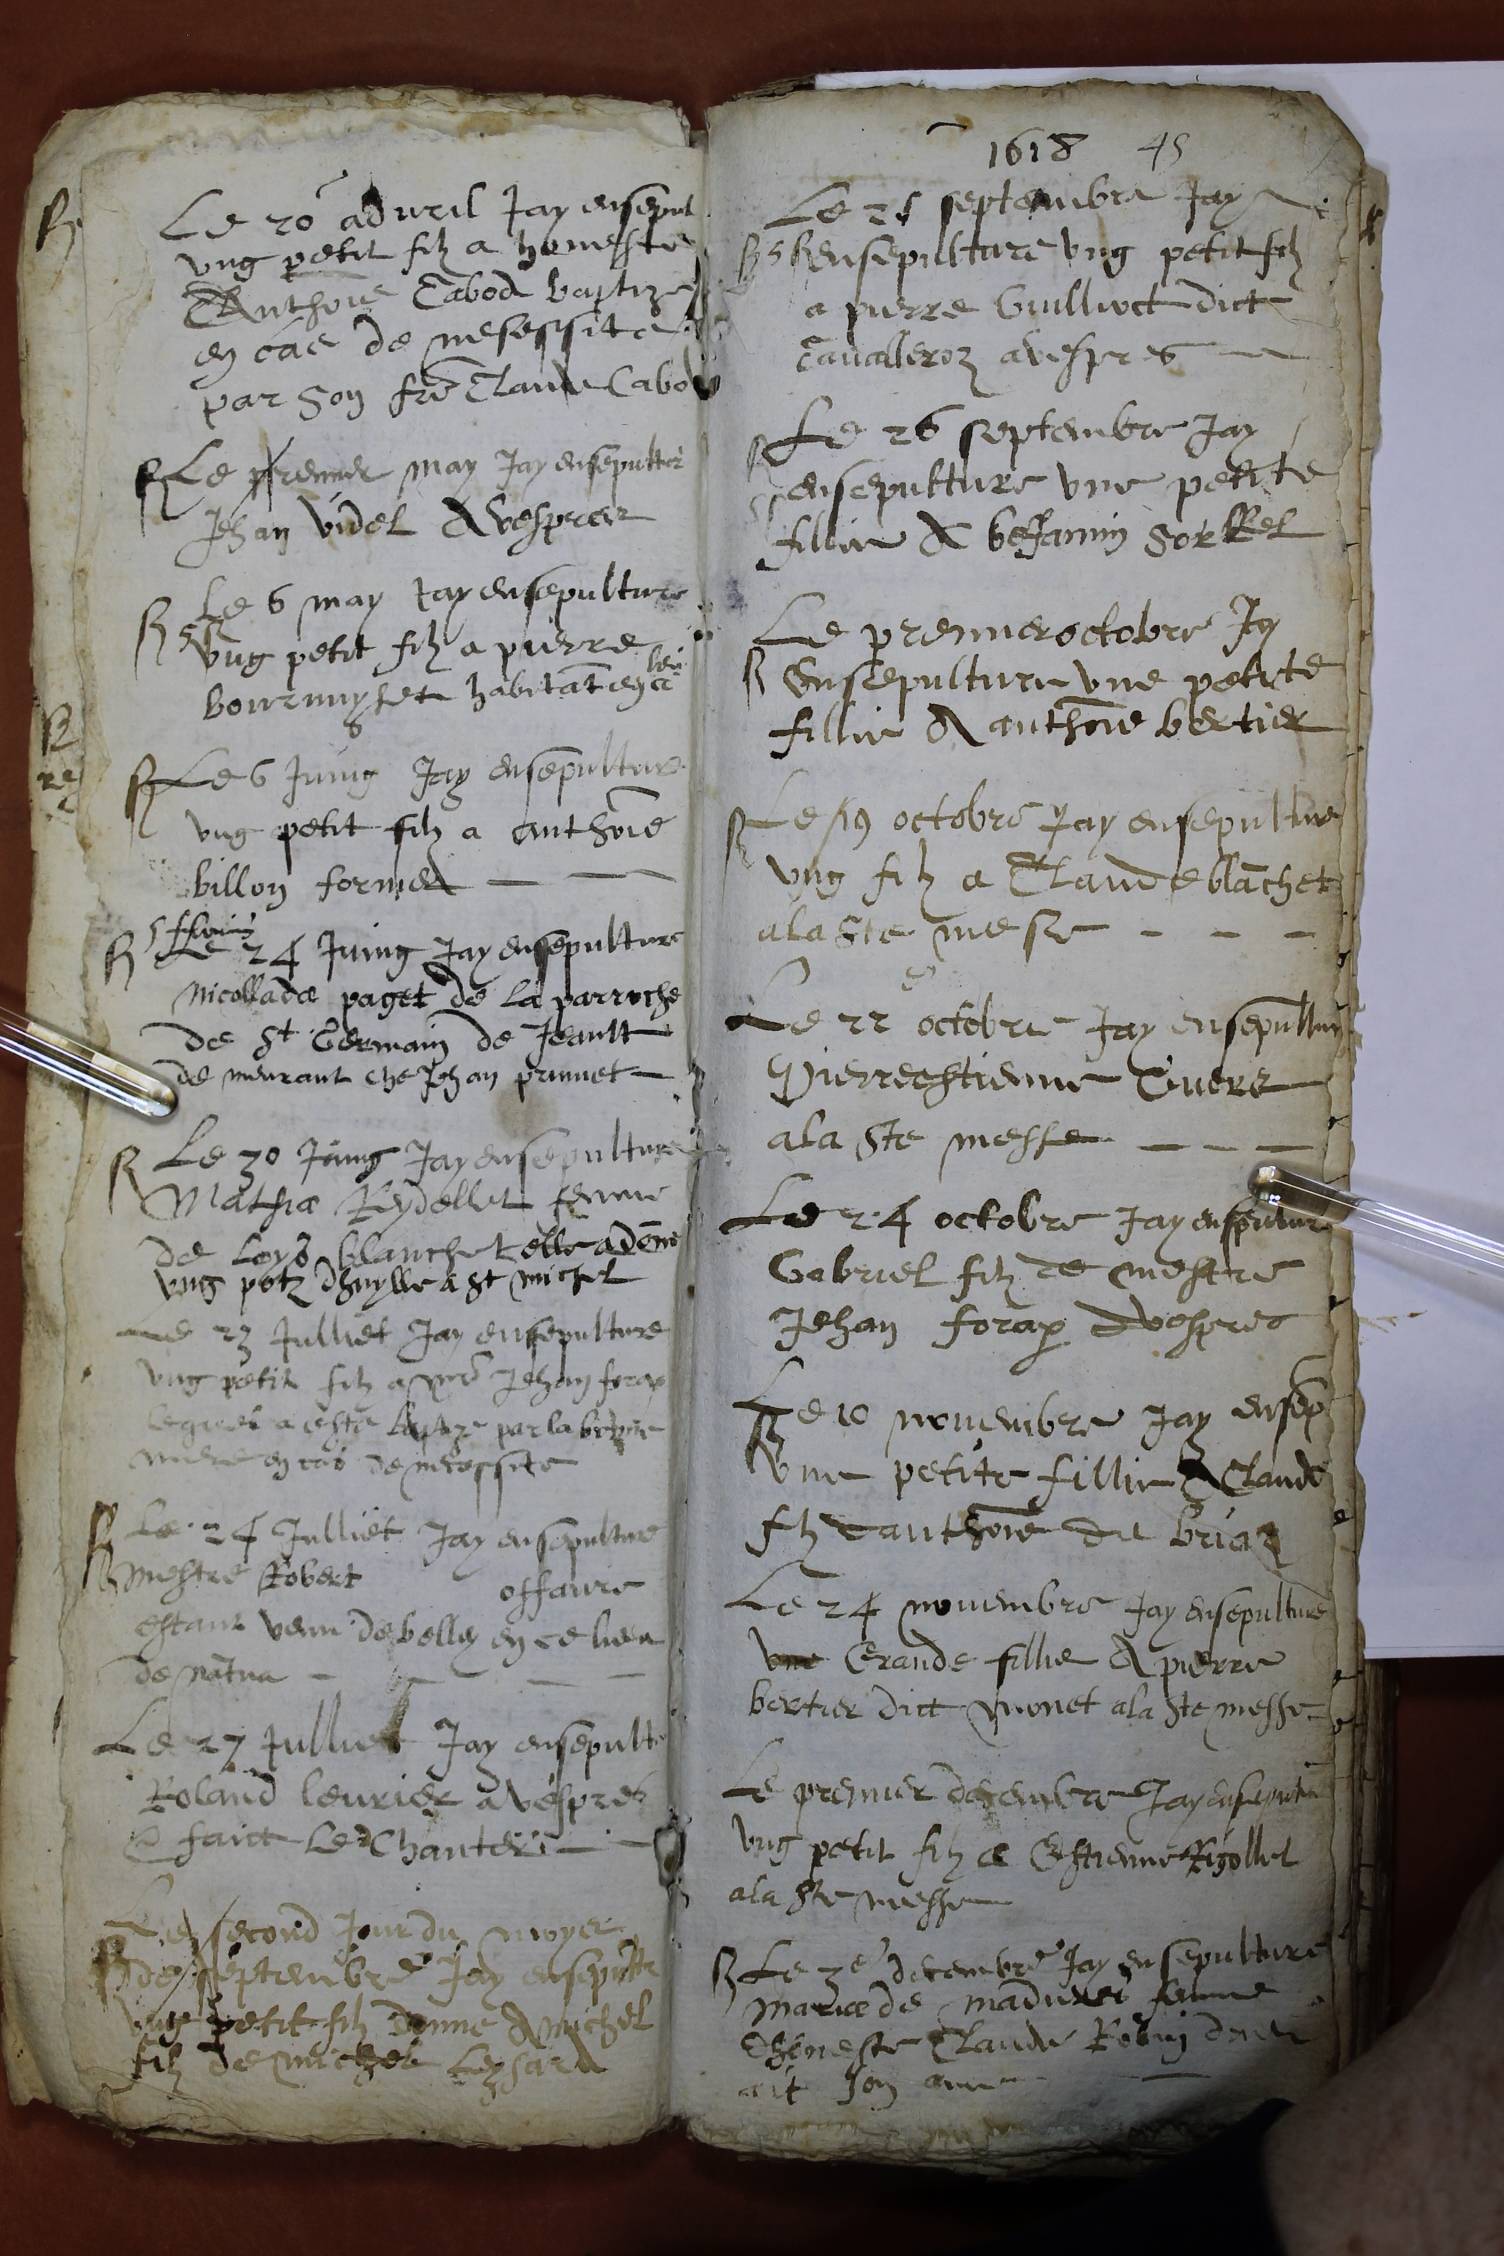 Le 20 advril Jay ensepul
ung petit filz a honneste
Anthoine Cabod baptize
en cas de nesessite
par son fre Claude Cabod
Le premier may Jay ensepultur
Jehan Videl A vespres
Le 6 may Jay ensepulture
ung petit filz a pierre
bourmuyset habitat en ce lieu
Le 6 Juing Jay ensepulture
ung petit filz a anthoine
billon
Le 24 Juing Jay ensepulture
Nicollada paget de la parroche
de St Germain de Jeault
de meurant che Jehan prunet
Le 30 Juing Jay ensepulture
Mathia Reydellet femme
de Loys blanchet elle a done
ung potz dhuylle a St michel
Le 23 Julliet Jay ensepulture
ung petit filz a Mre Jehan forax
lequel a este baptize par la
mere en cas de necessite
Le 24 Julliet Jay ensepulture
mestre Robert offaure
estant venu de belley en ce lieu
de natua
Le 27 Julliet Jay ensepultu
Roland levrier a vespres
faict Le Chanter
Le second jour du moys
de septembre Jay ensepultu
ung petit filz donne A michel
filz de michel Leysard
1618 45
Le 25 septembre Jay
ensepulture ung petit filz
a pierre Guilliot dict
Cavalleroz a vespres
Le 26 septembre Jay
ensepulture une petite
fillie A beJamin sorRel
Le premier octobre Jay
Ensepulture une petite
fillie A anthoine bertier
Le 19 octobre Jay ensepulture
ung filz a Claude blachet
a la Ste messe
Le 22 octobre Jay ensepultur
Pierre estienne
a la Ste messe
Le 24 octobre Jay ensepultur
Gabriel filz de mestre
Jehan forax A vespres
Le 10 novembre Jay ensep
une petite fillie A Claude
filz danthoine du
Le 24 novembre Jay ensepulture
une Grande fillie A pierre
bertier dict monet a la Ste messe
Le premier decembre Jay ensepultu
ung petit filz a Estienne Rigollet
a la Ste messe
Le 3e decembre Jay ensepulture
Maria de femme
dhoneste Claude Robin dieu
ait son ame